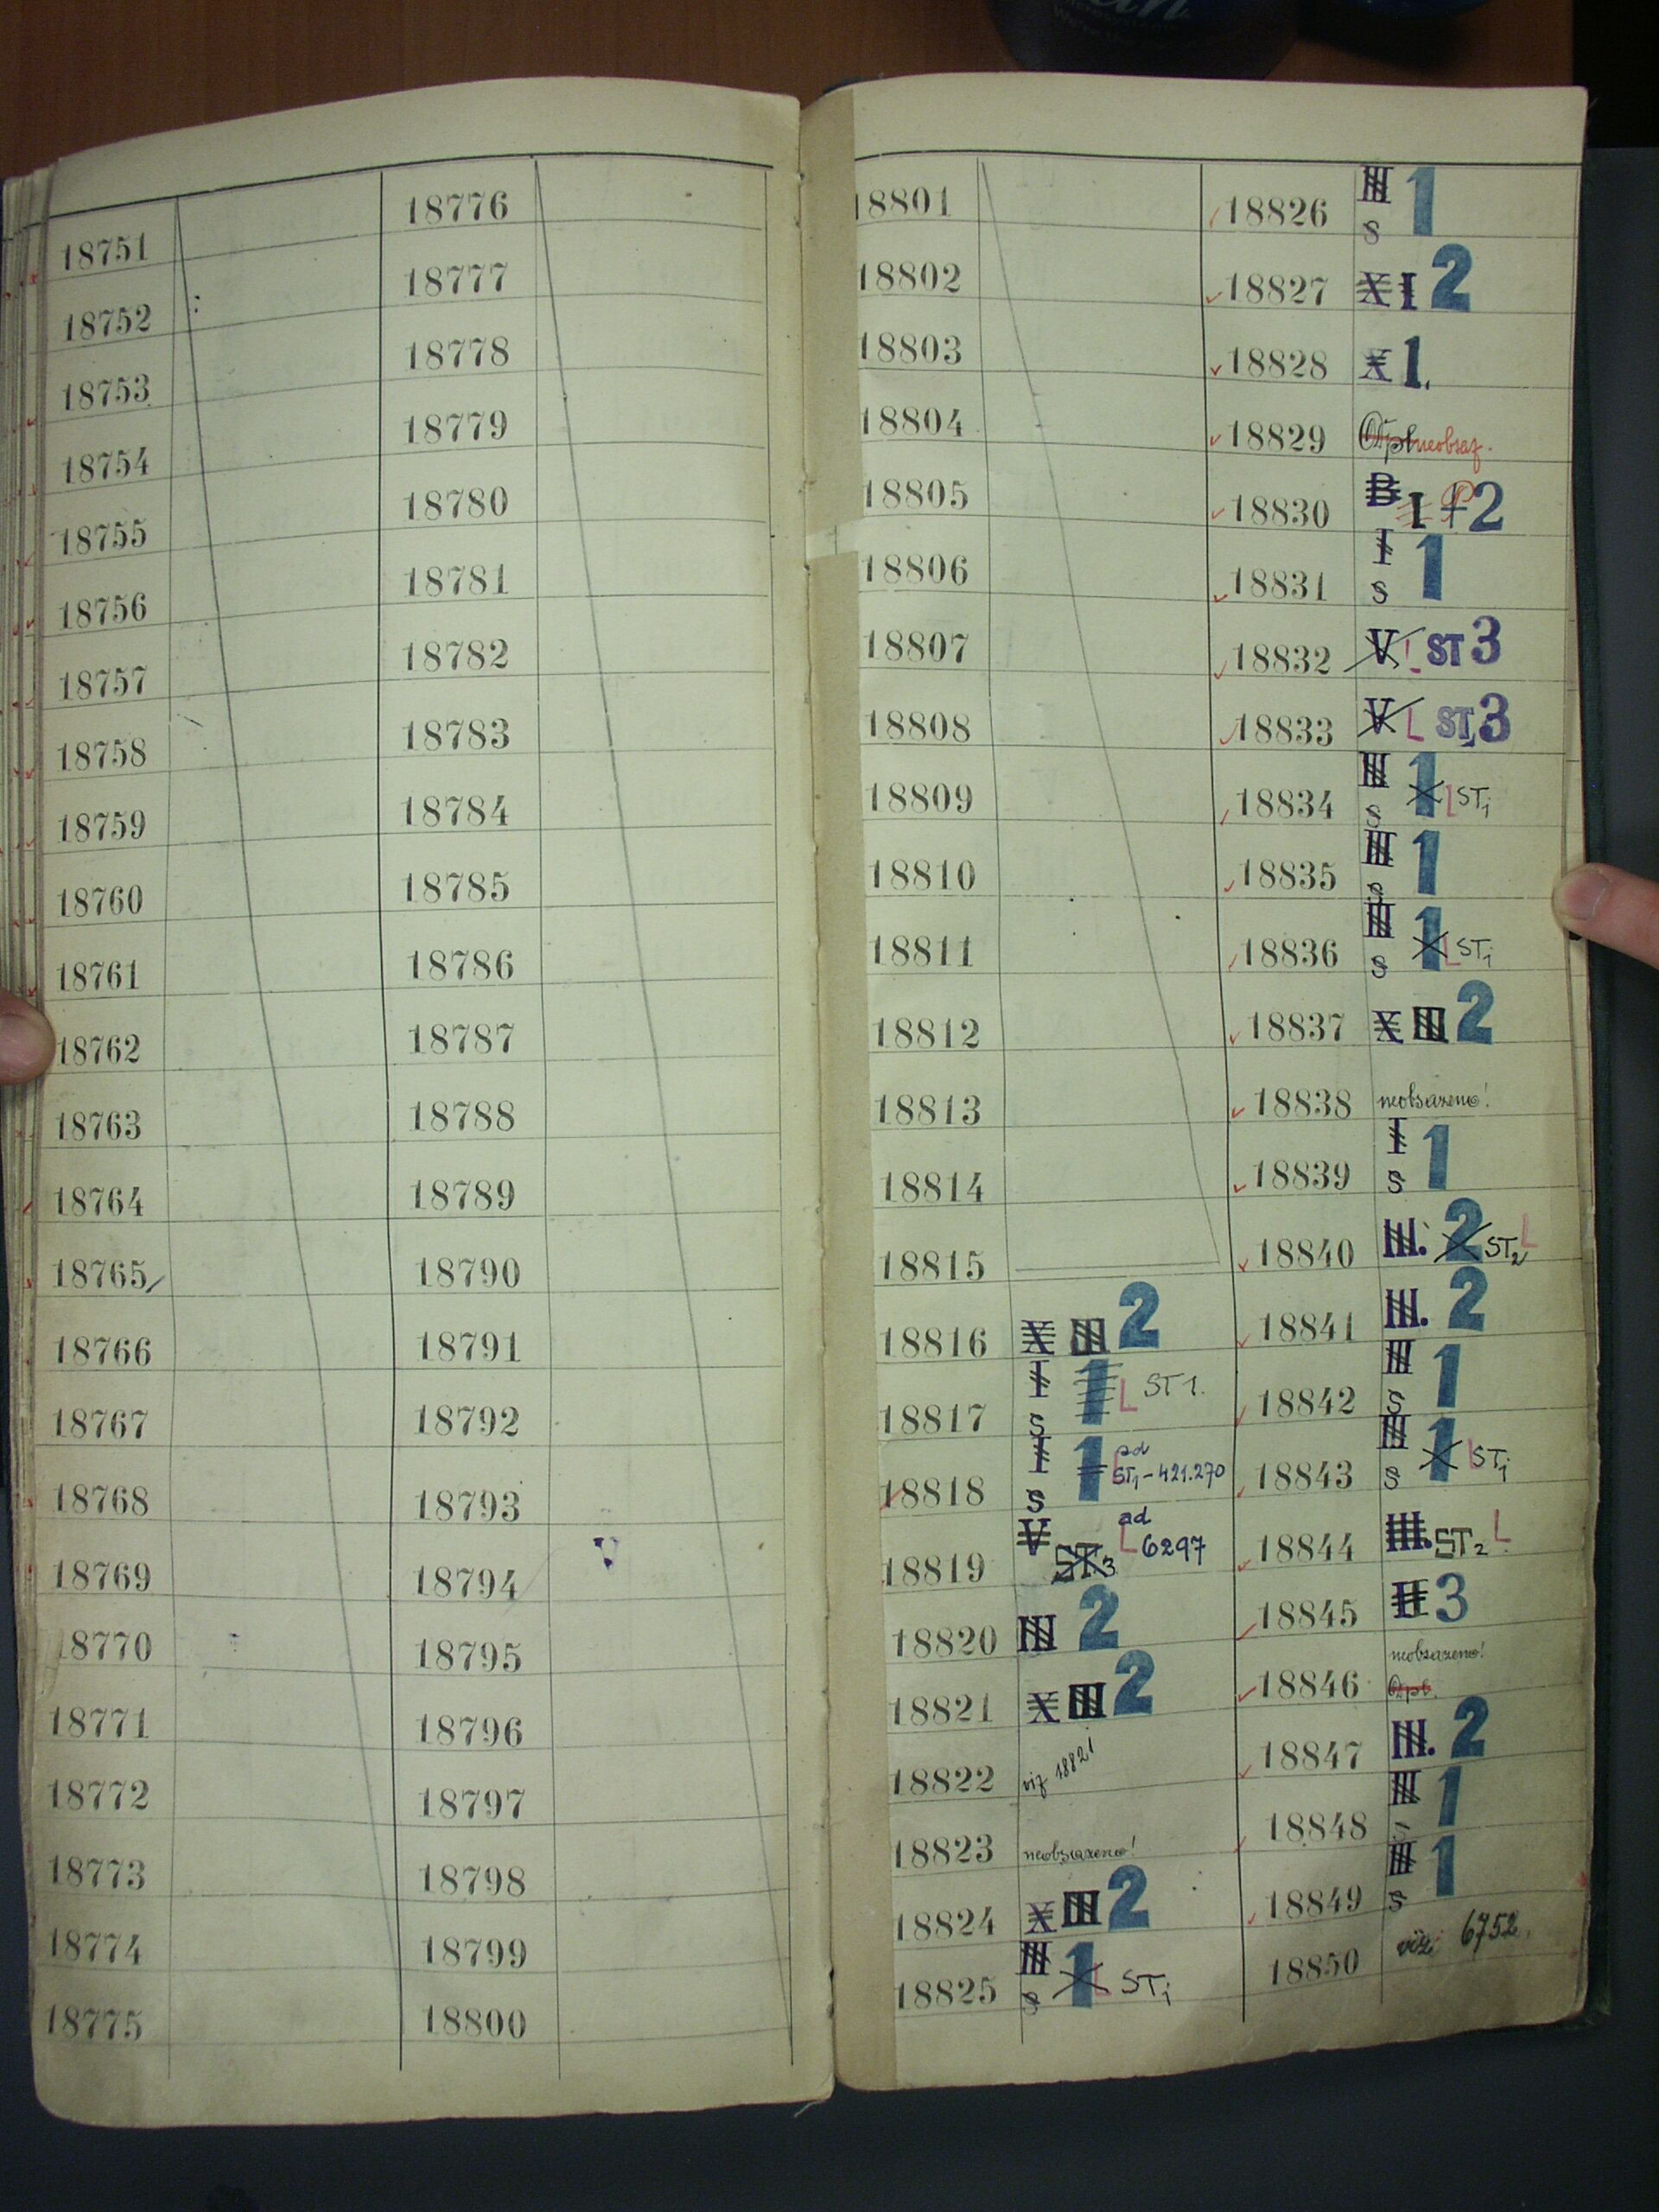 18751
18752
18753
18754
18755
18756
18757
18758
18759
18760
18761
18762
18763
18764
18765
18766
18767
18768
18769
18770
18771
18772
18773
18774
18775
18776
18777
18778
18779
18780
18781
18782
18783
18784
18785
18786
18787
18788
18789
18790
18791
18792
18793
18794
18795
18796
18797
18798
18799
18800
18801
18802
18803
18804
18805
18806
18807
18808
18809
18810
18811
18812
18813
18814
18815
18816 X III 2
18817 I s 1 L ST 1.
18818 I s 1 L ad ST1-421.270
18819 V ST.3 L ad 6297
18820 III 2
18821 X III 2
18822 viz 18821
18823 neobsazeno!
18824 X III 2
18825 III s 1 L ST1
18826 III s 1
18827 X I 2
18828 X 1.
18829 neobsaz.
18830 B I 2
18831 I s 1
18832 V L ST 3
18833 V L ST 3
18834 III s 1 L ST1
18835 III s 1
18836 III s 1 L ST1
18837 X III 2
18838 neobsazeno!
18839 I s 1
18840 III. 2 ST2 L
18841 III. 2
18842 III s 1
18843 III s 1 L ST1
18844 III. ST2 L
18845 II 3
18846 neobsazeno!
18847 III. 2
18848 III s 1
18849 III s 1
18850 viz 6752.